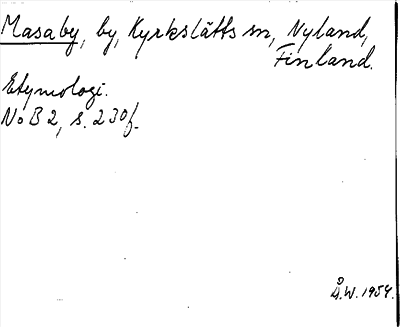 Masaby, by, Kyrkslätts sn, Nyland,
Finland.
Etymologi.
NoB 2, s. 230f.
Å.W. 1954.